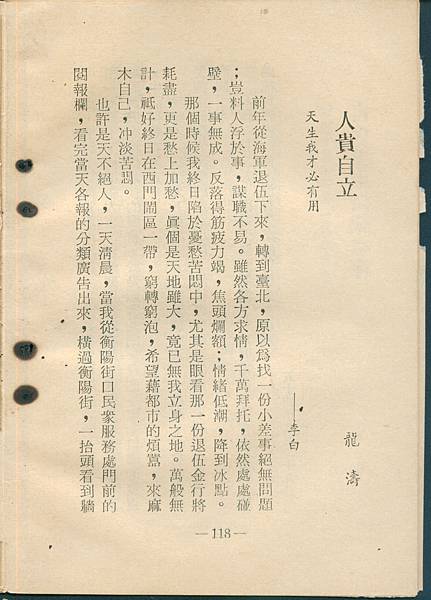 人貴自立
天生我才必有用
——李白
龍濤
前年從海軍退伍下來，轉到臺北，原以爲找一份小差事絕無問題
；豈料人浮於事，謀職不易。雖然各方求情，千萬拜托，依然處處碰
壁，一事無成。反落得筋疲力竭，焦頭爛額；情緒低潮，降到冰點。
那個時候我終日陷於憂愁苦悶中，尤其是眼看那一份退伍金行將
耗盡，更是愁上加愁，眞個是天地雖大，竟已無我立身之地。萬般無
計，祇好終日在西門鬧區一帶，窮轉窮泡，希望藉都市的煩囂，來麻
木自己，冲淡苦悶。
也許是天不絕人，一天清晨，當我從衡陽街口民衆服務處門前的
閱報欄，看完當天各報的分類廣告出來，橫過衡陽街，一抬頭看到騎
—118—